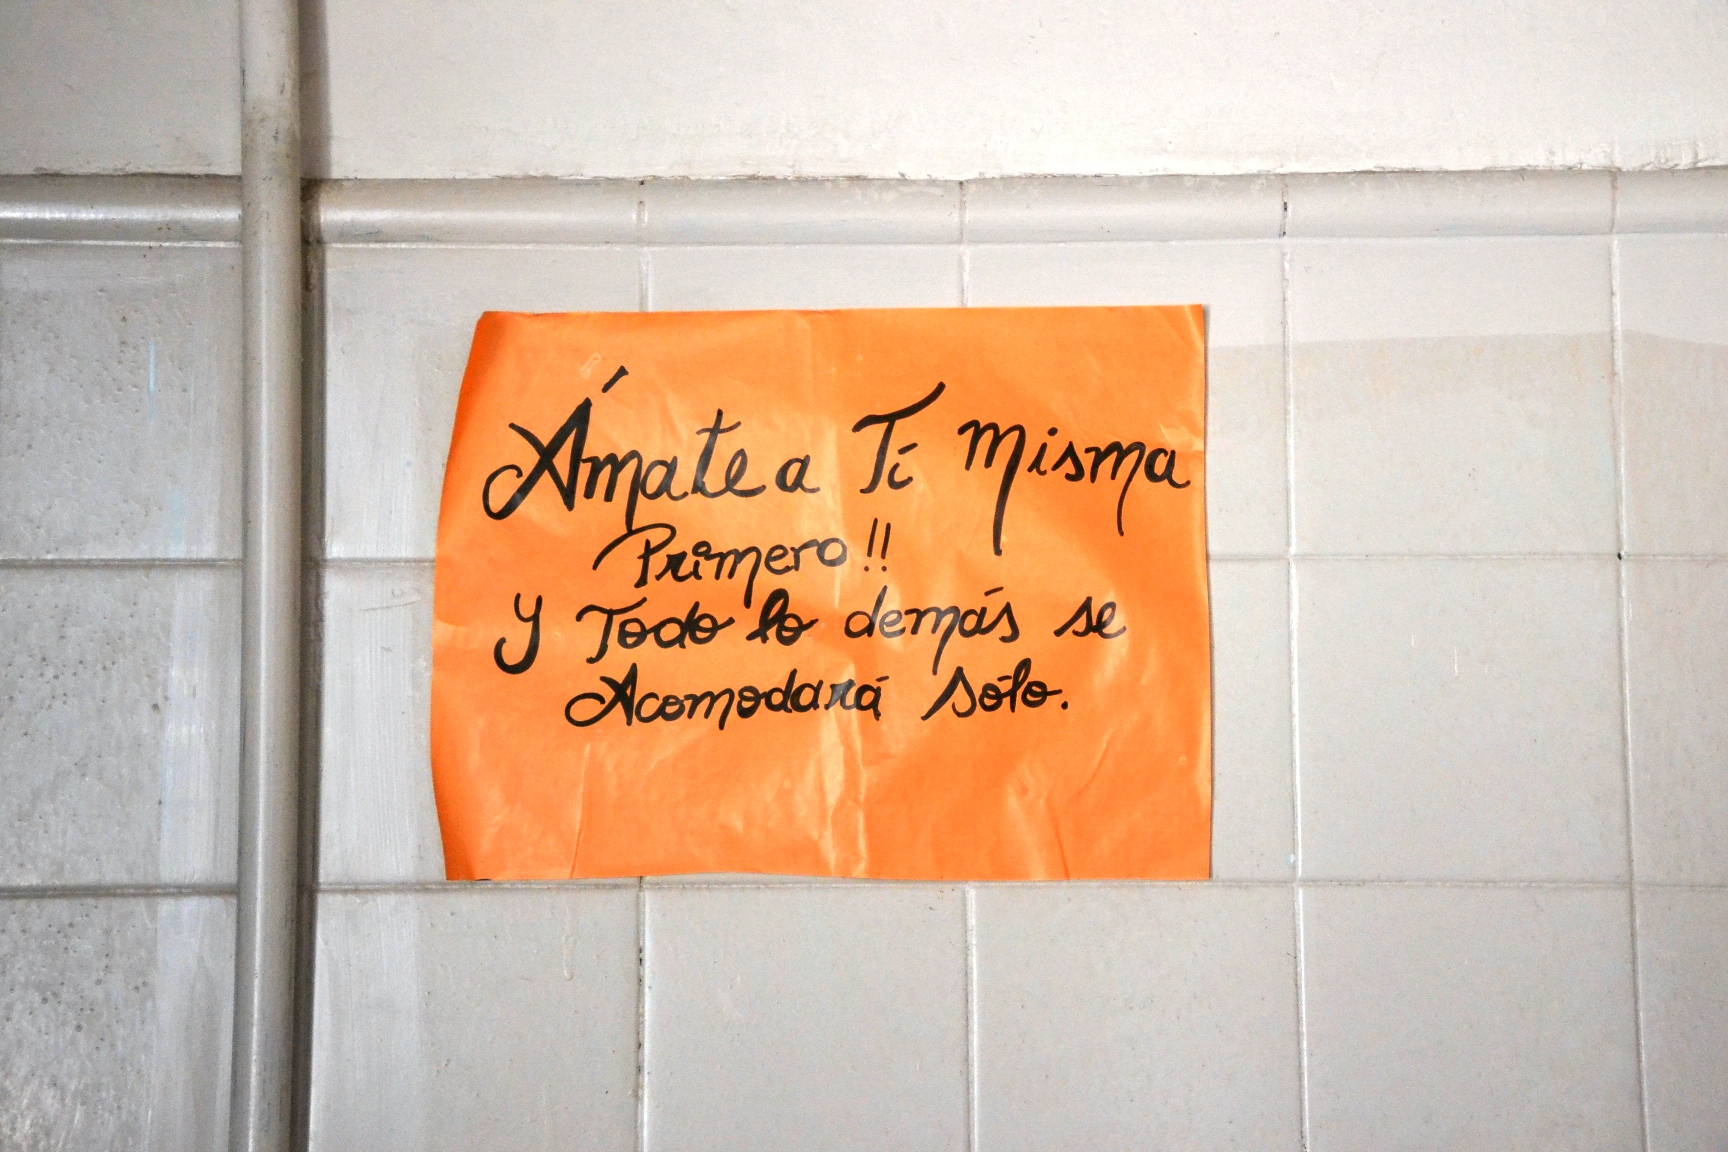 Ámate a Ti misma
Primero!!
Y Todo lo demás se
Acomodará sólo.